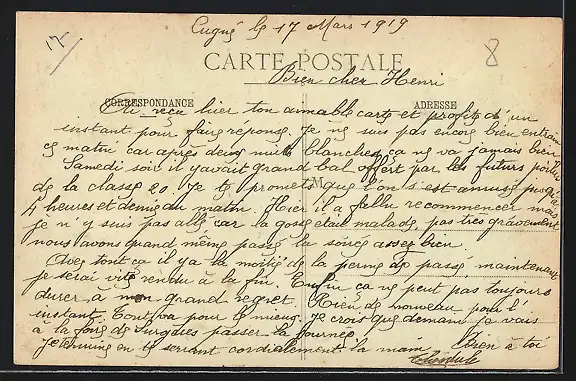 Cugné le 17 Mars 1919
8
CARTE POSTALE
Bien cher Henri
CORRESPONDANCE
ADRESSE
Ai reçu hier ton aimable carte et profite d'un
instant pour faire réponse. Je ne suis pas encore bien entrain
ce matin car après deux nuits blanches, ça ne va jamais bien
Samedi soir il y avait grand bal offert par les futurs poilus
de la classe 20. Je te promets que l'on s'est amusé jusqu'à
4 heures et demie du matin. Hier il a fallu recommencer mais
je n'y suis pas allé car la gosse était malade, pas très gravement
nous avons quand même passé la soirée assez bien.
Avec tout ça il y a la moitié de la perme de passé maintenant
je serai vite rendu à la fin. Enfin ça ne peut pas toujours
durer, à mon grand regret. Rien de nouveau pour l'
instant. Tout va pour le mieux. Je crois que demain je vais
à la foire de Surgères passer la journée
Je termine en te serrant cordialement la main. Bien à toi